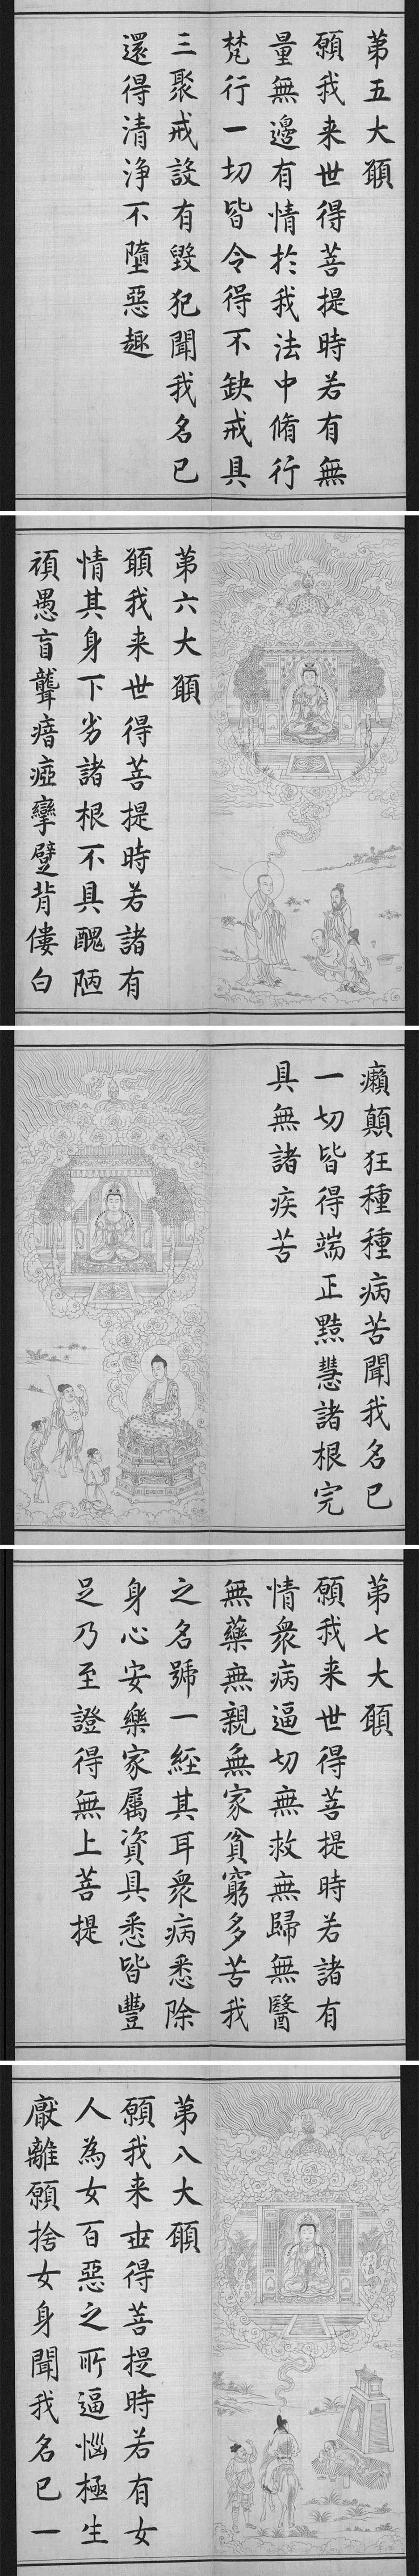 第五大願
願我来世得菩提時若有無
量無邊有情於我法中脩行
梵行一切皆令得不缺戒具
三聚戒設有毀犯聞我名已
還得清淨不墮惡趣
第六大願
願我来世得菩提時若諸有
情其身下劣諸根不具醜陋
頑愚盲聾瘖瘂攣躄背僂白
癩顛狂種種病苦聞我名已
一切皆得端正黠慧諸根完
具無諸疾苦
第七大願
願我来世得菩提時若諸有
情衆病逼切無救無歸無醫
無藥無親無家貧窮多苦我
之名號一經其耳衆病悉除
身心安樂家属資具悉皆豐
足乃至證得無上菩提
第八大願
願我来世得菩提時若有女
人為女百惡之所逼惱極生
厭離願捨女身聞我名已一